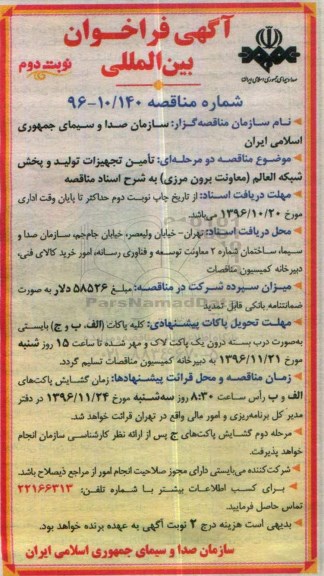 آگهی فراخوان
بین‌المللی
نوبت دوم
صدا و سیمای جمهوری اسلامی ایران
شماره مناقصه ۱۰/۱۴۰-۹۶
نام سازمان مناقصه‌گزار: سازمان صدا و سیمای جمهوری
اسلامی ایران
موضوع مناقصه دو مرحله‌ای: تأمین تجهیزات تولید و پخش
شبکه العالم (معاونت برون مرزی) به شرح اسناد مناقصه
مهلت دریافت اسناد: از تاریخ چاپ نوبت دوم حداکثر تا پایان وقت اداری
مورخ ۱۳۹۶/۱۰/۲۰ می‌باشد.
محل دریافت اسناد: تهران- خیابان ولیعصر، خیابان جام‌جم، سازمان صدا و
سیما، ساختمان شماره ۲ معاونت توسعه و فناوری رسانه، امور خرید کالای فنی،
دبیرخانه کمیسیون مناقصات
میزان سپرده شرکت در مناقصه: مبلغ ۵۸۵۲۶ دلار به صورت
ضمانتنامه بانکی قابل تمدید
مهلت تحویل پاکات پیشنهادی: کلیه پاکات (الف، ب و ج) بایستی
به‌صورت درب بسته درون یک پاکت لاک و مهر شده تا ساعت ۱۵ روز شنبه
مورخ ۱۳۹۶/۱۱/۲۱ به دبیرخانه کمیسیون مناقصات تسلیم گردد.
زمان مناقصه و محل قرائت پیشنهادها: زمان گشایش پاکت‌های
الف و ب رأس ساعت ۸:۳۰ روز سه‌شنبه مورخ ۱۳۹۶/۱۱/۲۴ در دفتر
مدیر کل برنامه‌ریزی و امور مالی واقع در تهران قرائت خواهد شد.
مرحله دوم گشایش پاکت‌های ج پس از ارائه نظر کارشناسی سازمان انجام
خواهد پذیرفت.
شرکت‌کننده می‌بایستی دارای مجوز صلاحیت انجام امور از مراجع ذیصلاح باشد.
برای کسب اطلاعات بیشتر با شماره تلفن: ۲۲۱۶۶۳۱۳
تماس حاصل فرمایید.
بدیهی است هزینه درج ۲ نوبت آگهی به عهده برنده خواهد بود.
سازمان صدا و سیمای جمهوری اسلامی ایران